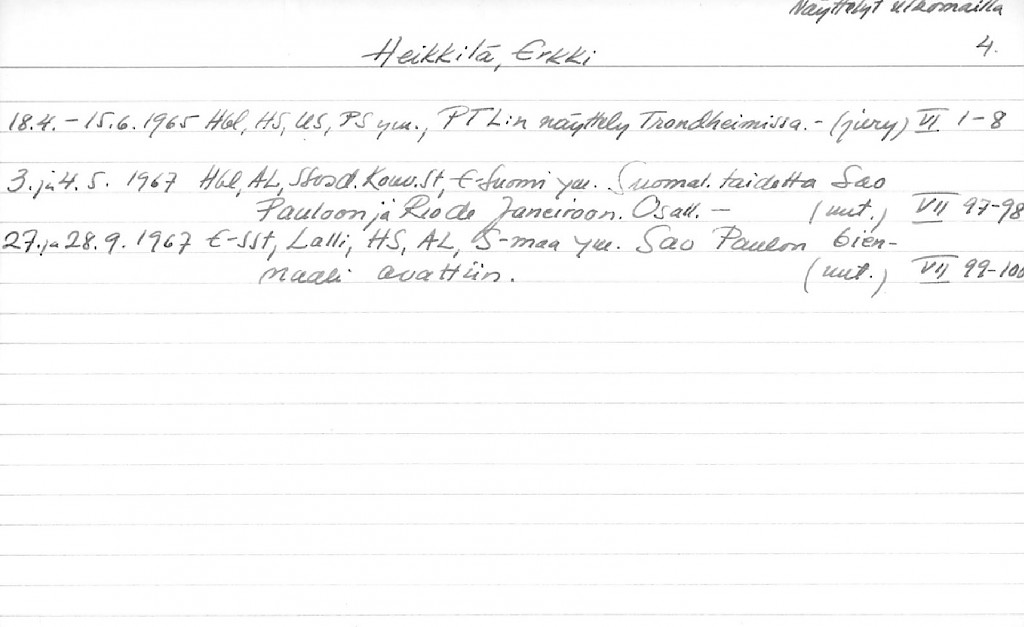 Näyttelyt ulkomailla
4.
Heikkilä, Erkki
18.4. - 15.6. 1965 Hbl, HS, US, PS ym., PTL:n näyttely Trondheimissa. - (jury) VI 1-8
3. ja 4. 5. 1967 Hbl, AL, SSosd. Kouv.St, E-Suomi ym. Suomal. taidetta Sao
Pauloon ja Rio de Janeiroon. Osall. - (uut.) VII 97-98
27. ja 28. 9. 1967 E-SSt, Lalli, HS, AL, S-maa ym. Sao Paulon bien-
naali avattiin. (uut.) VII 99-100